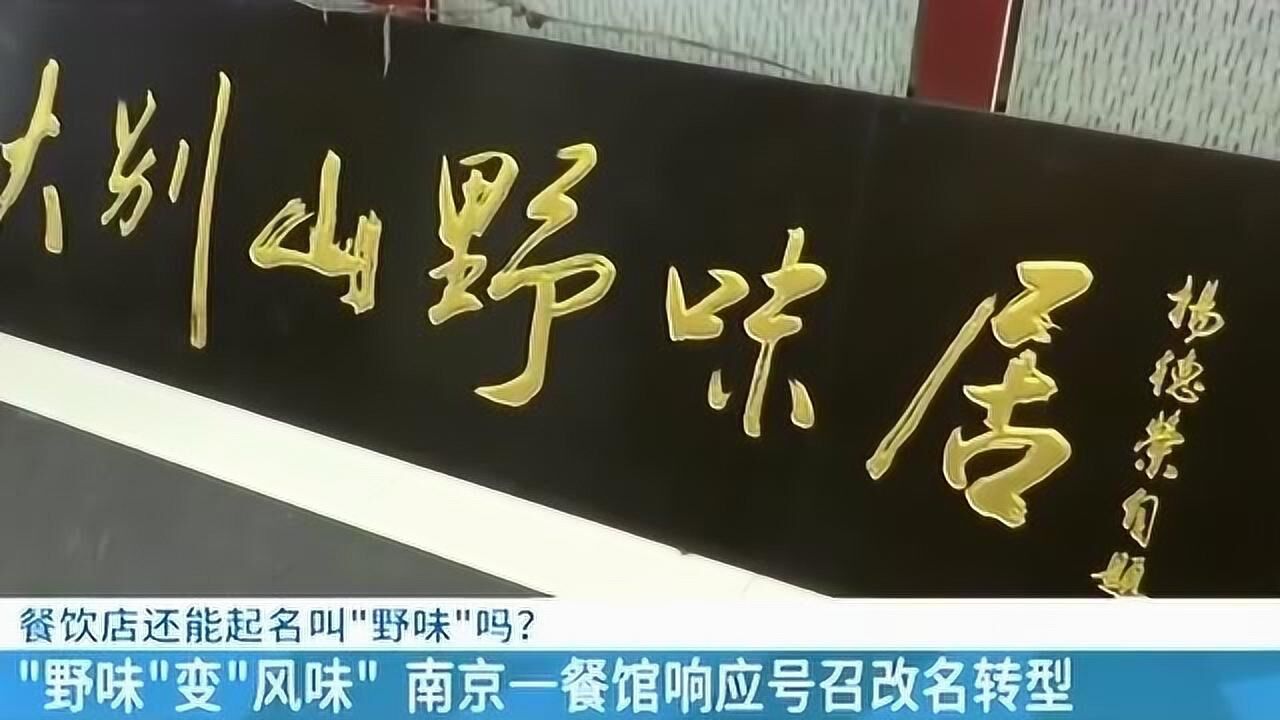 大别山野味居
杨德荣自题
餐饮店还能起名叫"野味"吗?
"野味"变"风味" 南京一餐馆响应号召改名转型